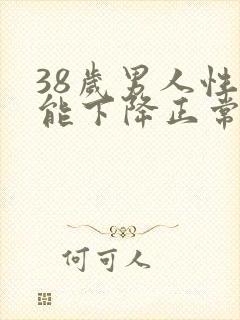 38歲男人性
能下降正常
何可人